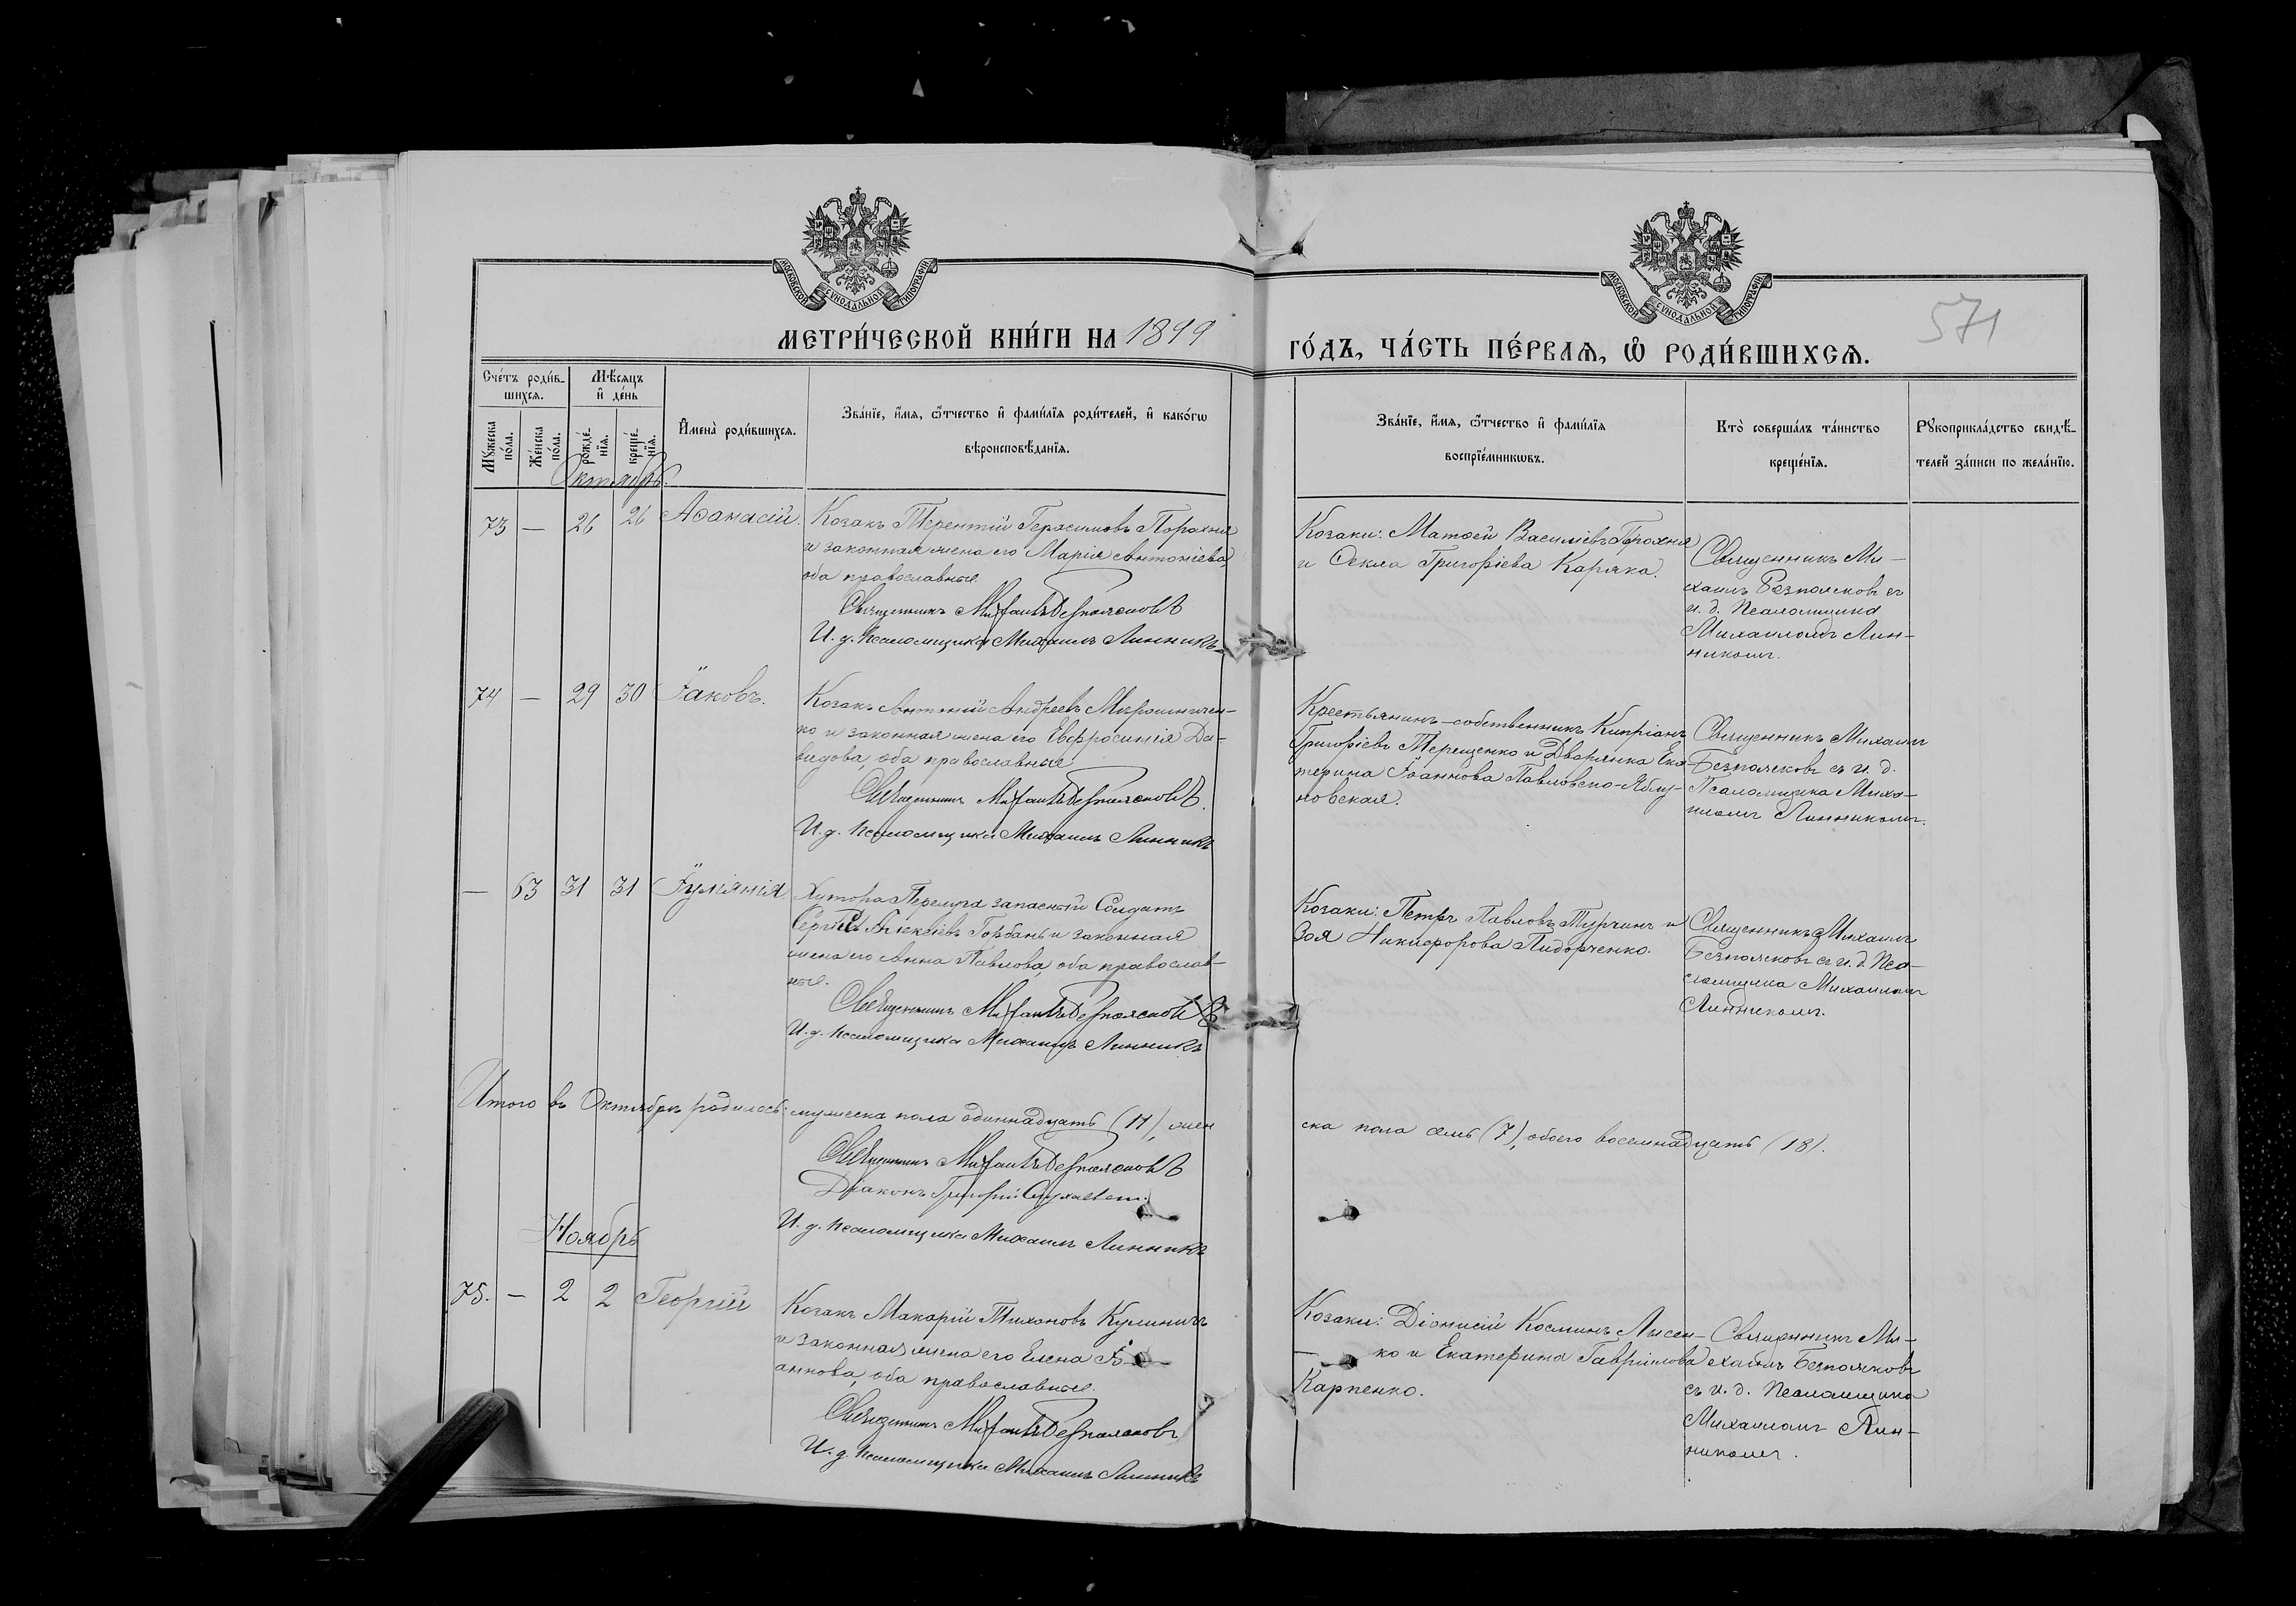 МОСКОВСКОЙ СУНОДАЛЬНОЙ ТИПОГРАФІИ
МОСКОВСКОЙ СУНОДАЛЬНОЙ ТИПОГРАФІИ
571
МЕТРИ́ЧЕСКОЙ КНИ́ГИ НА 1899
ГО́ДЪ, ЧА́СТЬ ПЕ́РВАѦ, Ѡ҆ РОДИ́ВШИХСѦ.
Сче́тъ роди́в-
шихсѧ.
Мѣ́сѧцъ
и҆ де́нь
Мꙋ́жеска
по́ла.
Же́нска
по́ла.
рожде́-
нїѧ.
креще́-
нїѧ.
И҆мена̀ роди́вшихсѧ.
Зва́нїе, и҆́мѧ, ѻ҆́тчество и҆ фами́лїѧ роди́телей, и҆ како́гѡ
вѣроисповѣ́данїѧ.
Зва́нїе, и҆́мѧ, ѻ҆́тчество и҆ фами́лїѧ
воспрїе́мникѡвъ.
Кто̀ соверша́лъ та́инство
креще́нїѧ.
Рꙋкоприкла́дство свидѣ́-
телей за́писи по жела́нїю.
Октябрь.
73 — 26 26 Аѳанасій.
Козакъ Терентій Герасимовъ Порохня
и законная жена его Марія Антоніева,
оба православные.
Священникъ Михаилъ Безпоясковъ
И. д. псаломщика Михаилъ Линникъ
Козаки: Матѳей Василіевъ Порохня
и Ѳекла Григоріева Каряка.
Священникъ Ми-
хаилъ Безпоясковъ съ
и. д. псаломщика
Михаиломъ Лин-
никомъ.
74 — 29 30 Іаковъ.
Козакъ Антоній Андреевъ Мирошничен-
ко и законная жена его Евфросинія Да-
видова, оба православные
Священникъ Михаилъ Безпоясковъ.
И. д. псаломщика Михаилъ Линникъ
Крестьянинъ-собственникъ Кипріанъ
Григоріевъ Терещенко и Дворянка Ека-
терина Іоаннова Павловско-Яблу-
новская.
Священникъ Михаилъ
Безпоясковъ съ и. д.
Псаломщика Миха-
иломъ Линникомъ.
— 63 31 31 Іуліанія
Хутора Перелуга запасный Солдатъ
Сергій Алексіевъ Горбань и законная
жена его Анна Павлова, оба православ-
ные.
Священникъ Михаилъ Безпоясковъ
И. д. псаломщика Михаилъ Линникъ
Козаки: Петръ Павловъ Турчинъ и
Зоя Никифорова Пидорченко.
Священникъ Михаилъ
Безпоясковъ съ и. д. Пса-
ломщика Михаиломъ
Линникомъ.
Итого въ Октябрѣ родилось: мужеска пола одиннадцать (11), жен
ска пола семь (7), обоего восемнадцать (18).
Священникъ Михаилъ Безпоясковъ
Діаконъ Григорій
И. д. псаломщика Михаилъ Линникъ
Ноябрь
75. — 2 2 Георгій
Козакъ Макарій Тихоновъ Кулиничъ
и законная жена его Елена Іо-
аннова, оба православные.
Священникъ Михаилъ Безпоясковъ
И. д. псаломщика Михаилъ Линникъ
Козаки: Діонисій Косминъ Лысен-
ко и Екатерина Гавріилова
Карпенко.
Священникъ Ми-
хаилъ Безпоясковъ
съ и. д. псаломщика
Михаиломъ Лин-
никомъ.